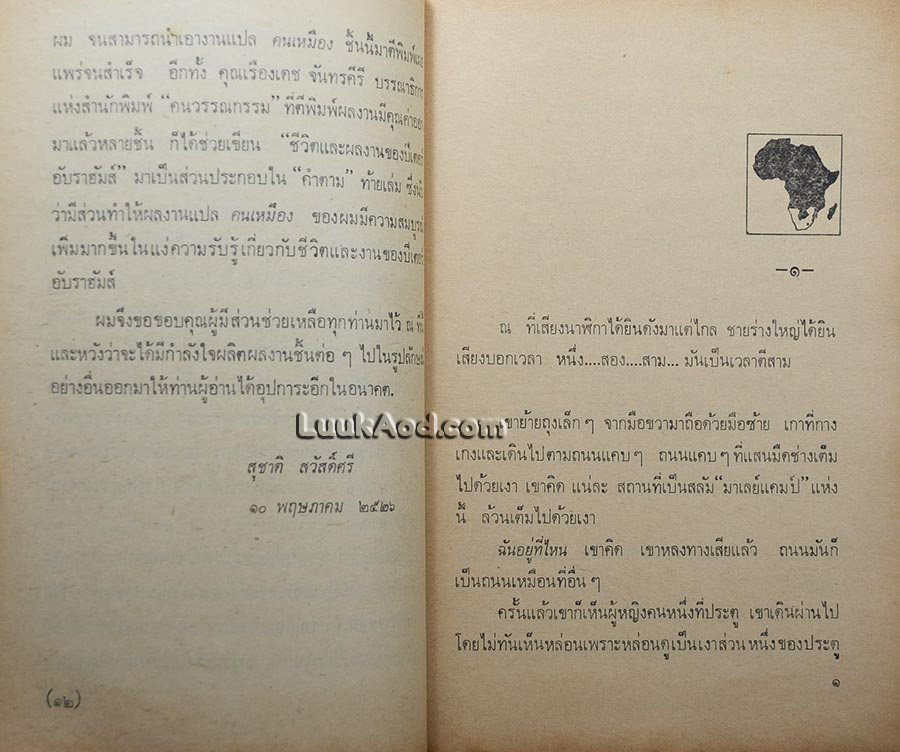 ผม จนสามารถนำเอางานแปล คนเหมือง ชิ้นนี้มาตีพิมพ์เผย
แพร่จนสำเร็จ อีกทั้ง คุณเรืองเดช จันทรคีรี บรรณาธิการ
แห่งสำนักพิมพ์ “คนวรรณกรรม” ที่ตีพิมพ์ผลงานมีคุณค่าออก
มาแล้วหลายชิ้น ก็ได้ช่วยเขียน “ชีวิตและผลงานของปีเตอร์
อับราฮัมส์” มาเป็นส่วนประกอบใน “คำตาม” ท้ายเล่ม ซึ่งนับ
ว่ามีส่วนทำให้ผลงานแปล คนเหมือง ของผมมีความสมบูรณ์
เพิ่มมากขึ้นในแง่ความรับรู้เกี่ยวกับชีวิตและงานของปีเตอร์
อับราฮัมส์
ผมจึงขอขอบคุณผู้มีส่วนช่วยเหลือทุกท่านมาไว้ ณ ที่นี้
และหวังว่าจะได้มีกำลังใจผลิตผลงานชิ้นต่อ ๆ ไปในรูปลักษณ์
อย่างอื่นออกมาให้ท่านผู้อ่านได้อุปการะอีกในอนาคต.
สุชาติ สวัสดิ์ศรี
๑๐ พฤษภาคม ๒๕๒๖
(๑๒)
LuukAod.com
—๑—
ณ ที่เสียงนาฬิกาได้ยินดังมาแต่ไกล ชายร่างใหญ่ได้ยิน
เสียงบอกเวลา หนึ่ง....สอง....สาม... มันเป็นเวลาตีสาม
เขาย้ายถุงเล็ก ๆ จากมือขวามาถือด้วยมือซ้าย เกาที่กาง
เกงและเดินไปตามถนนแคบ ๆ ถนนแคบ ๆ ที่แสนมืดช่างเต็ม
ไปด้วยเงา เขาคิด แน่ละ สถานที่เป็นสลัม“มาเลย์แคมป์” แห่ง
นี้ ล้วนเต็มไปด้วยเงา
ฉันอยู่ที่ไหน เขาคิด เขาหลงทางเสียแล้ว ถนนมันก็
เป็นถนนเหมือนที่อื่น ๆ
ครั้นแล้วเขาก็เห็นผู้หญิงคนหนึ่งที่ประตู เขาเดินผ่านไป
โดยไม่ทันเห็นหล่อนเพราะหล่อนดูเป็นเงาส่วนหนึ่งของประตู
๑